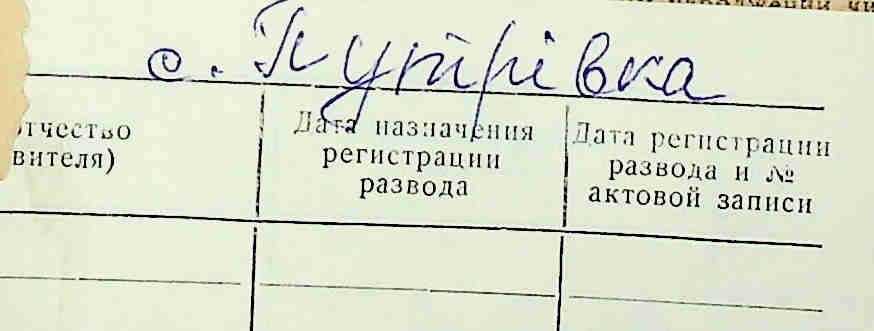 с. Путрівка
отчество
вителя)
Дата назначения
регистрации
развода
Дата регистрации
развода и №
актовой записи